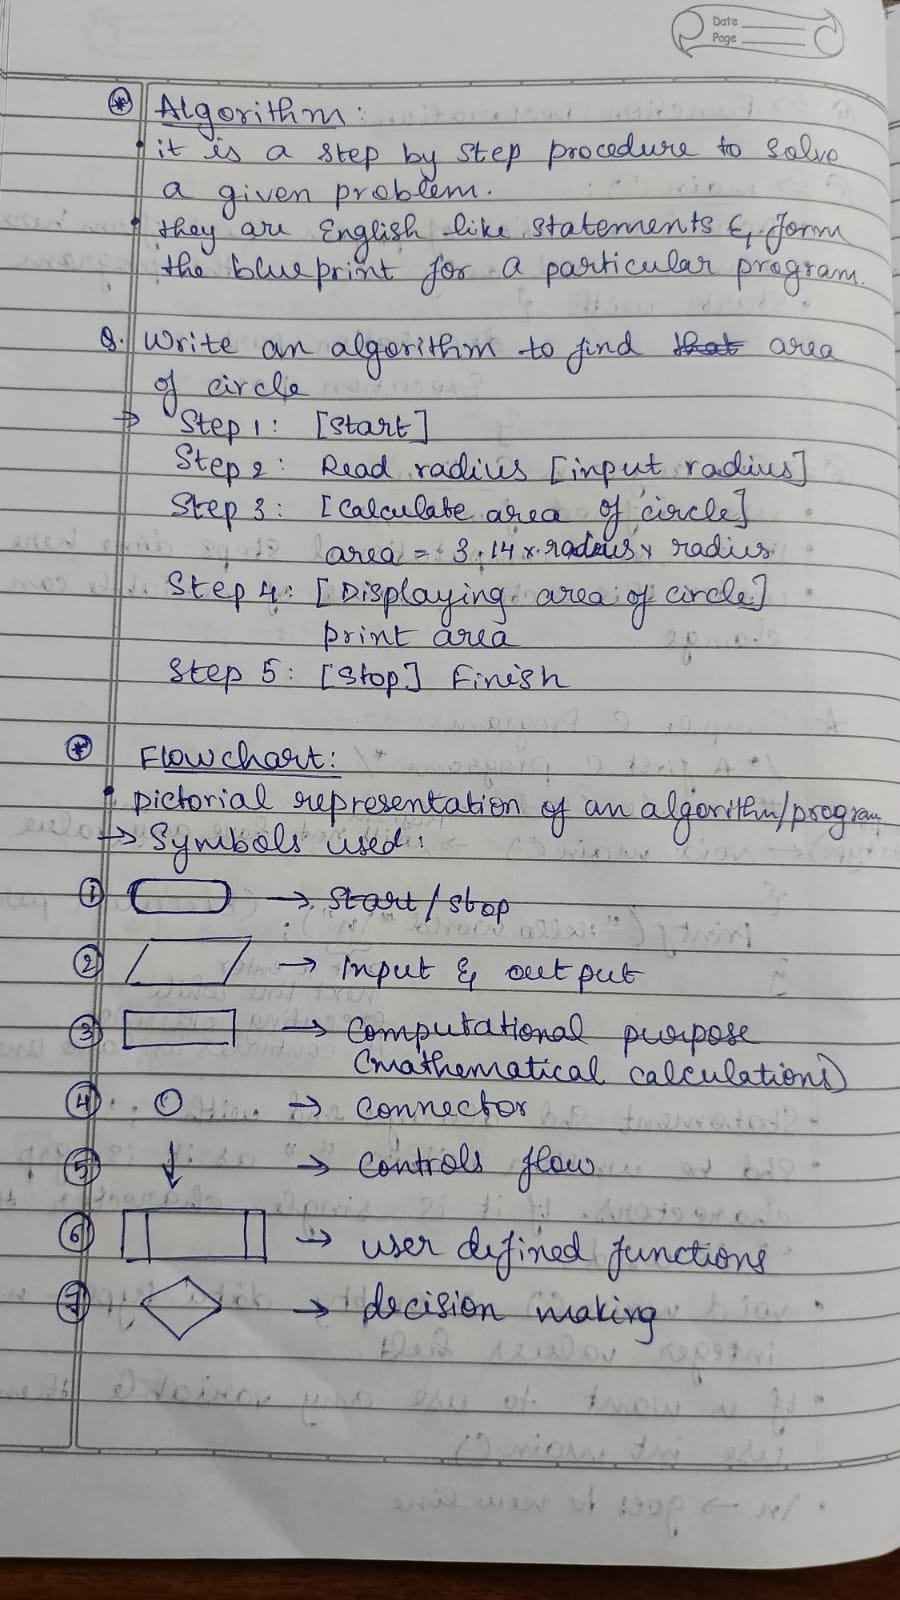 Date
Page
Algorithm:
• it is a step by step procedure to solve
a given problem.
• they are English like statements & form
the blueprint for a particular program.
Q. Write an algorithm to find that area
of circle
→ Step 1: [Start]
Step 2: Read radius [input radius]
Step 3: [Calculate area of circle]
area = 3.14 x radius x radius
Step 4: [Displaying area of circle]
print area
Step 5: [Stop] Finish
Flowchart:
• pictorial representation of an algorithm/program
→ Symbols used:
① → Start/stop
② → Input & output
③ → Computational purpose
(mathematical calculations)
④ → Connector
⑤ → Controls flow
⑥ → user defined functions
⑦ → decision making